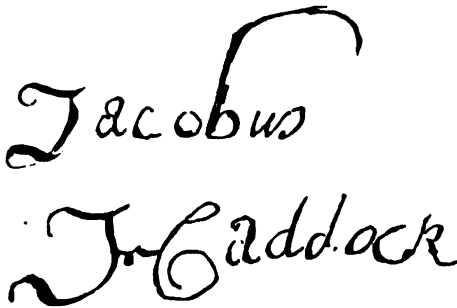 Jacobus
JrCaddock